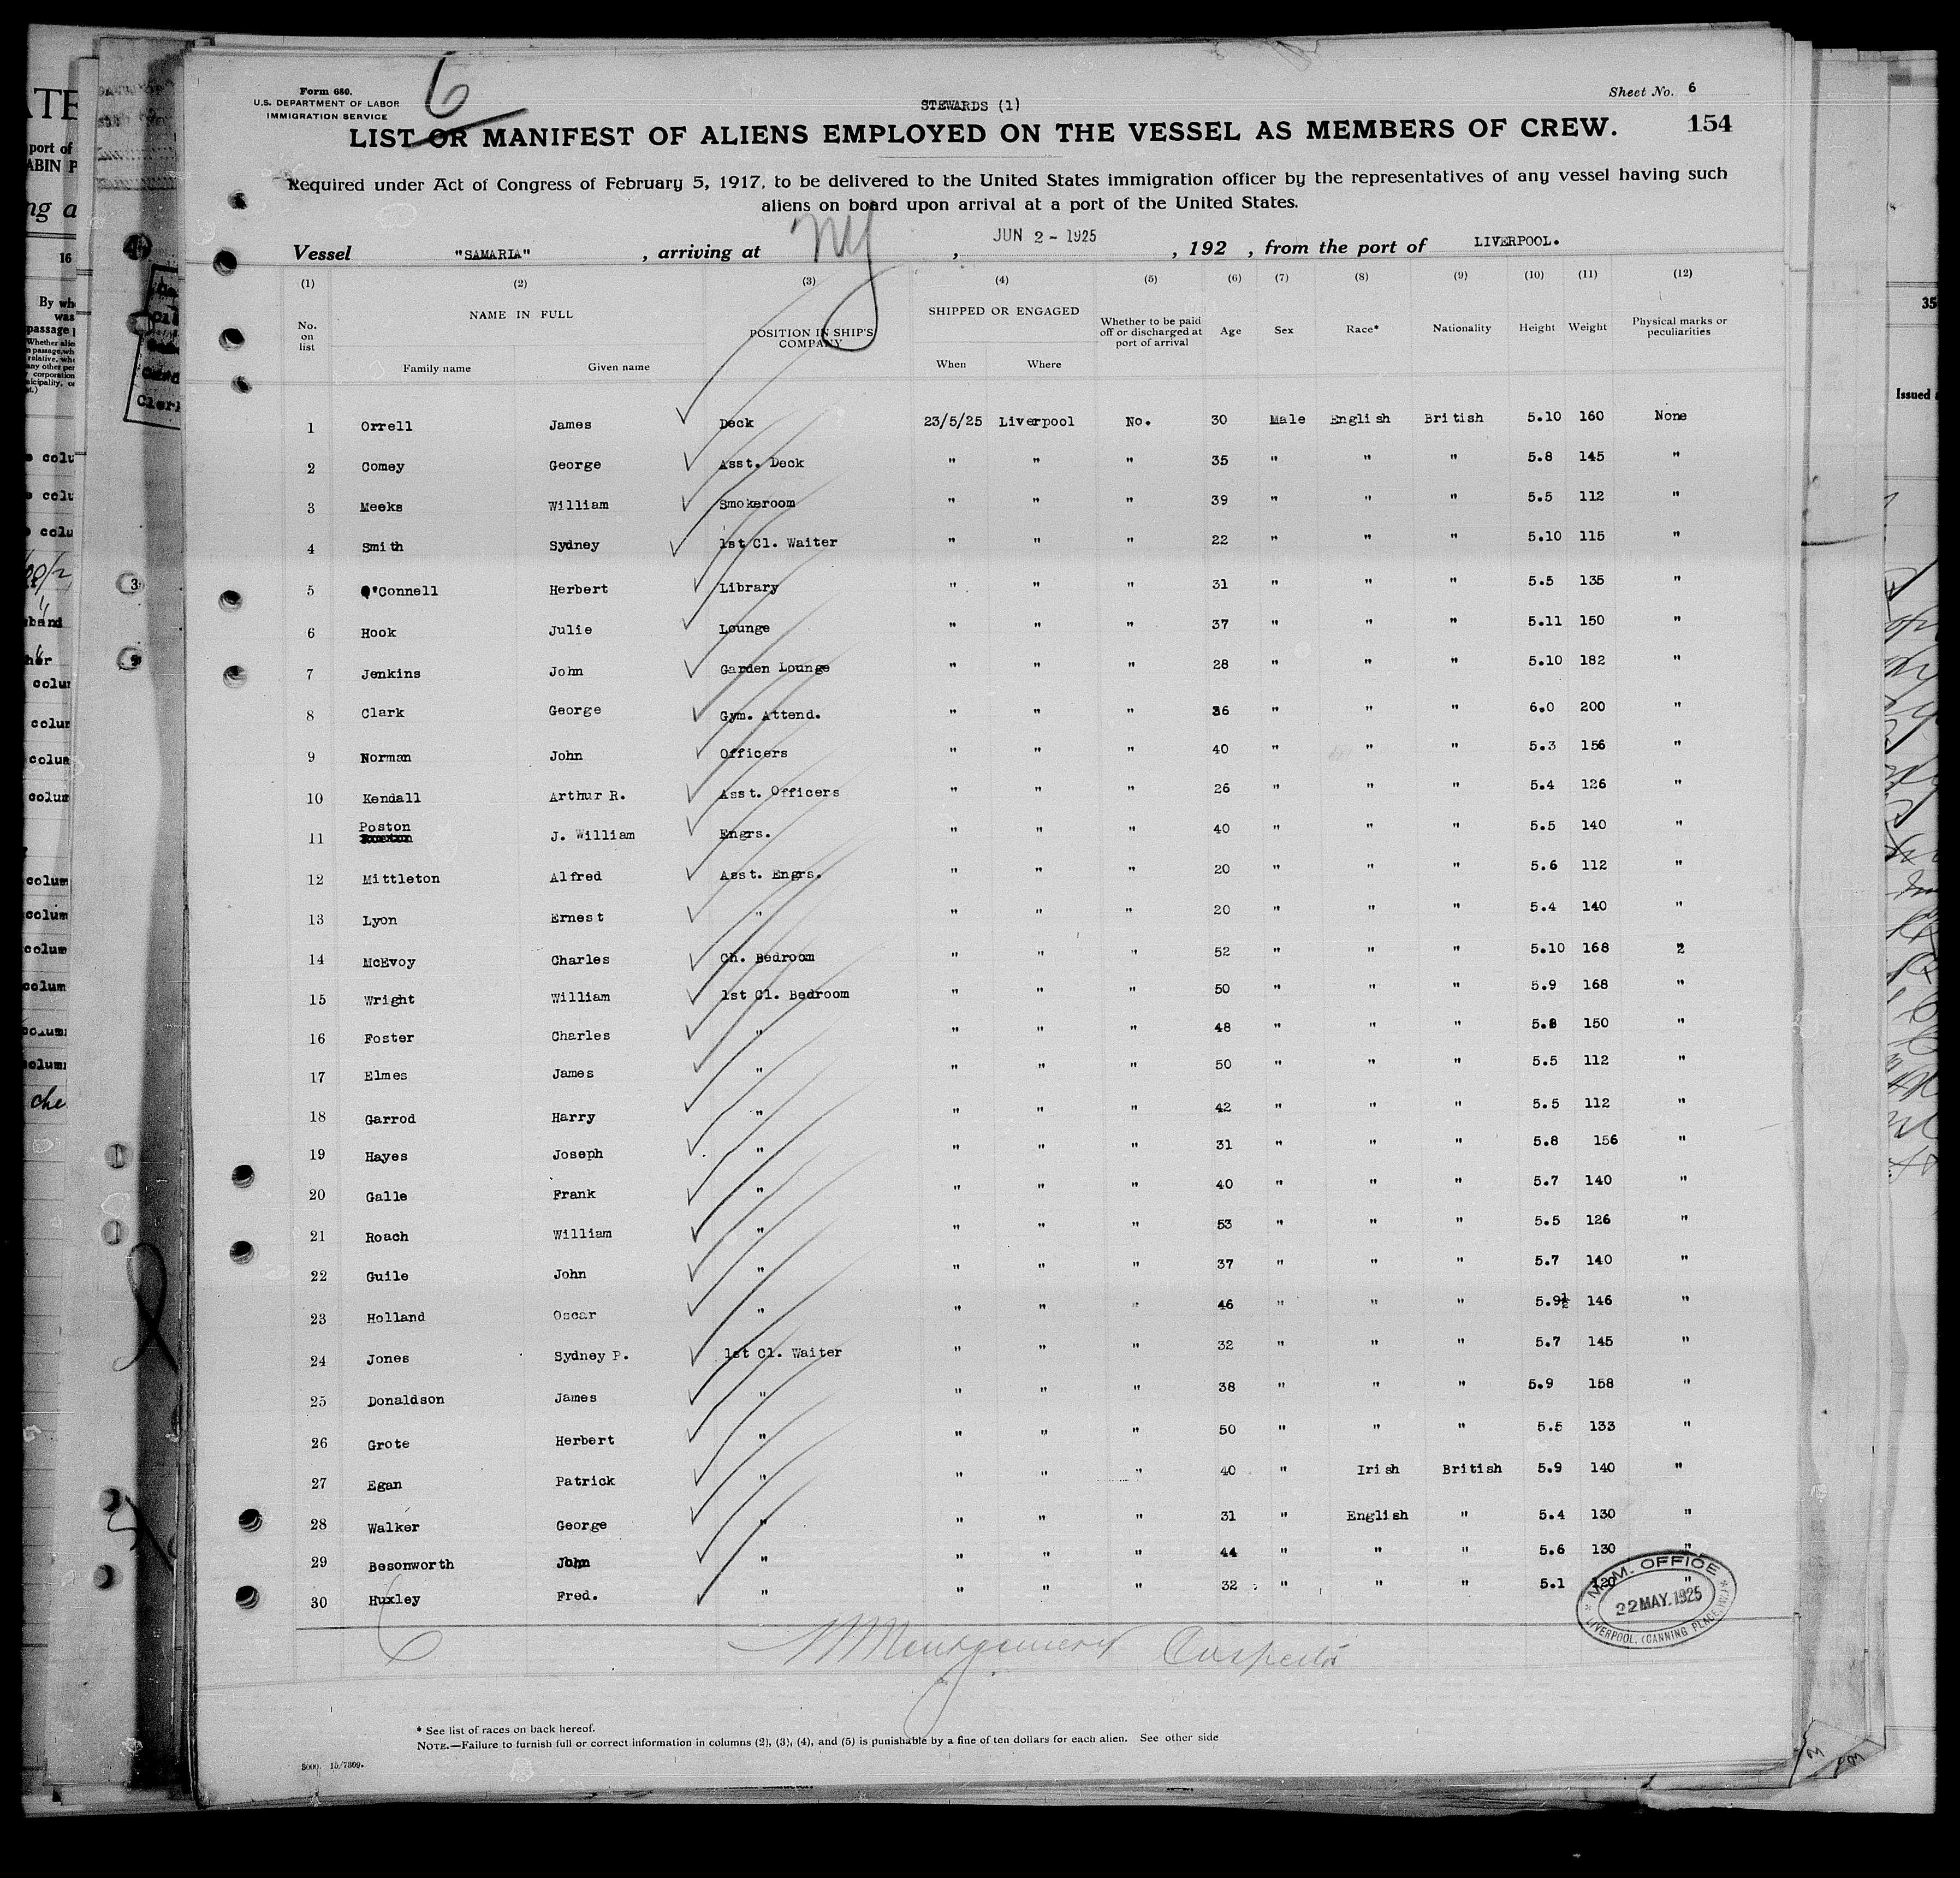 Form 680.
U.S. DEPARTMENT OF LABOR
IMMIGRATION SERVICE
6
STEWARDS (1)
Sheet No. 6
LIST OR MANIFEST OF ALIENS EMPLOYED ON THE VESSEL AS MEMBERS OF CREW.
154
Required under Act of Congress of February 5, 1917, to be delivered to the United States immigration officer by the representatives of any vessel having such
aliens on board upon arrival at a port of the United States.
Vessel "SAMARIA", arriving at NY, JUN 2 - 1925, 192 , from the port of LIVERPOOL.
(1) (2) (3) (4) (5) (6) (7) (8) (9) (10) (11) (12)
No. on list NAME IN FULL POSITION IN SHIP'S COMPANY SHIPPED OR ENGAGED Whether to be paid off or discharged at port of arrival Age Sex Race* Nationality Height Weight Physical marks or peculiarities
Family name Given name When Where
1 Orrell James Deck 23/5/25 Liverpool No. 30 Male English British 5.10 160 None
2 Comey George Asst. Deck " " " 35 " " " 5.8 145 "
3 Meeks William Smokeroom " " " 39 " " " 5.5 112 "
4 Smith Sydney 1st Cl. Waiter " " " 22 " " " 5.10 115 "
5 O'Connell Herbert Library " " " 31 " " " 5.5 135 "
6 Hook Julie Lounge " " " 37 " " " 5.11 150 "
7 Jenkins John Garden Lounge " " " 28 " " " 5.10 182 "
8 Clark George Gym. Attend. " " " 36 " " " 6.0 200 "
9 Norman John Officers " " " 40 " " " 5.3 156 "
10 Kendall Arthur R. Asst. Officers " " " 26 " " " 5.4 126 "
11 Poston J. William Engrs. " " " 40 " " " 5.5 140 "
12 Mittleton Alfred Asst. Engrs. " " " 20 " " " 5.6 112 "
13 Lyon Ernest " " " " 20 " " " 5.4 140 "
14 McEvoy Charles Ch. Bedroom " " " 52 " " " 5.10 168 "
15 Wright William 1st Cl. Bedroom " " " 50 " " " 5.9 168 "
16 Foster Charles " " " " 48 " " " 5.8 150 "
17 Elmes James " " " " 50 " " " 5.5 112 "
18 Garrod Harry " " " " 42 " " " 5.5 112 "
19 Hayes Joseph " " " " 31 " " " 5.8 156 "
20 Galle Frank " " " " 40 " " " 5.7 140 "
21 Roach William " " " " 53 " " " 5.5 126 "
22 Guile John " " " " 37 " " " 5.7 140 "
23 Holland Oscar " " " " 46 " " " 5.9½ 146 "
24 Jones Sydney P. 1st Cl. Waiter " " " 32 " " " 5.7 145 "
25 Donaldson James " " " " 38 " " " 5.9 158 "
26 Grote Herbert " " " " 50 " " " 5.5 133 "
27 Egan Patrick " " " " 40 " Irish British 5.9 140 "
28 Walker George " " " " 31 " English " 5.4 130 "
29 Besonworth John " " " " 44 " " " 5.6 130 "
30 Huxley Fred. " " " " 32 " " " 5.1 120 "
M.M. OFFICE
22 MAY.1925
LIVERPOOL. (CANNING PLACE)
Montgomery Inspector
* See list of races on back hereof.
NOTE.—Failure to furnish full or correct information in columns (2), (3), (4), and (5) is punishable by a fine of ten dollars for each alien. See other side